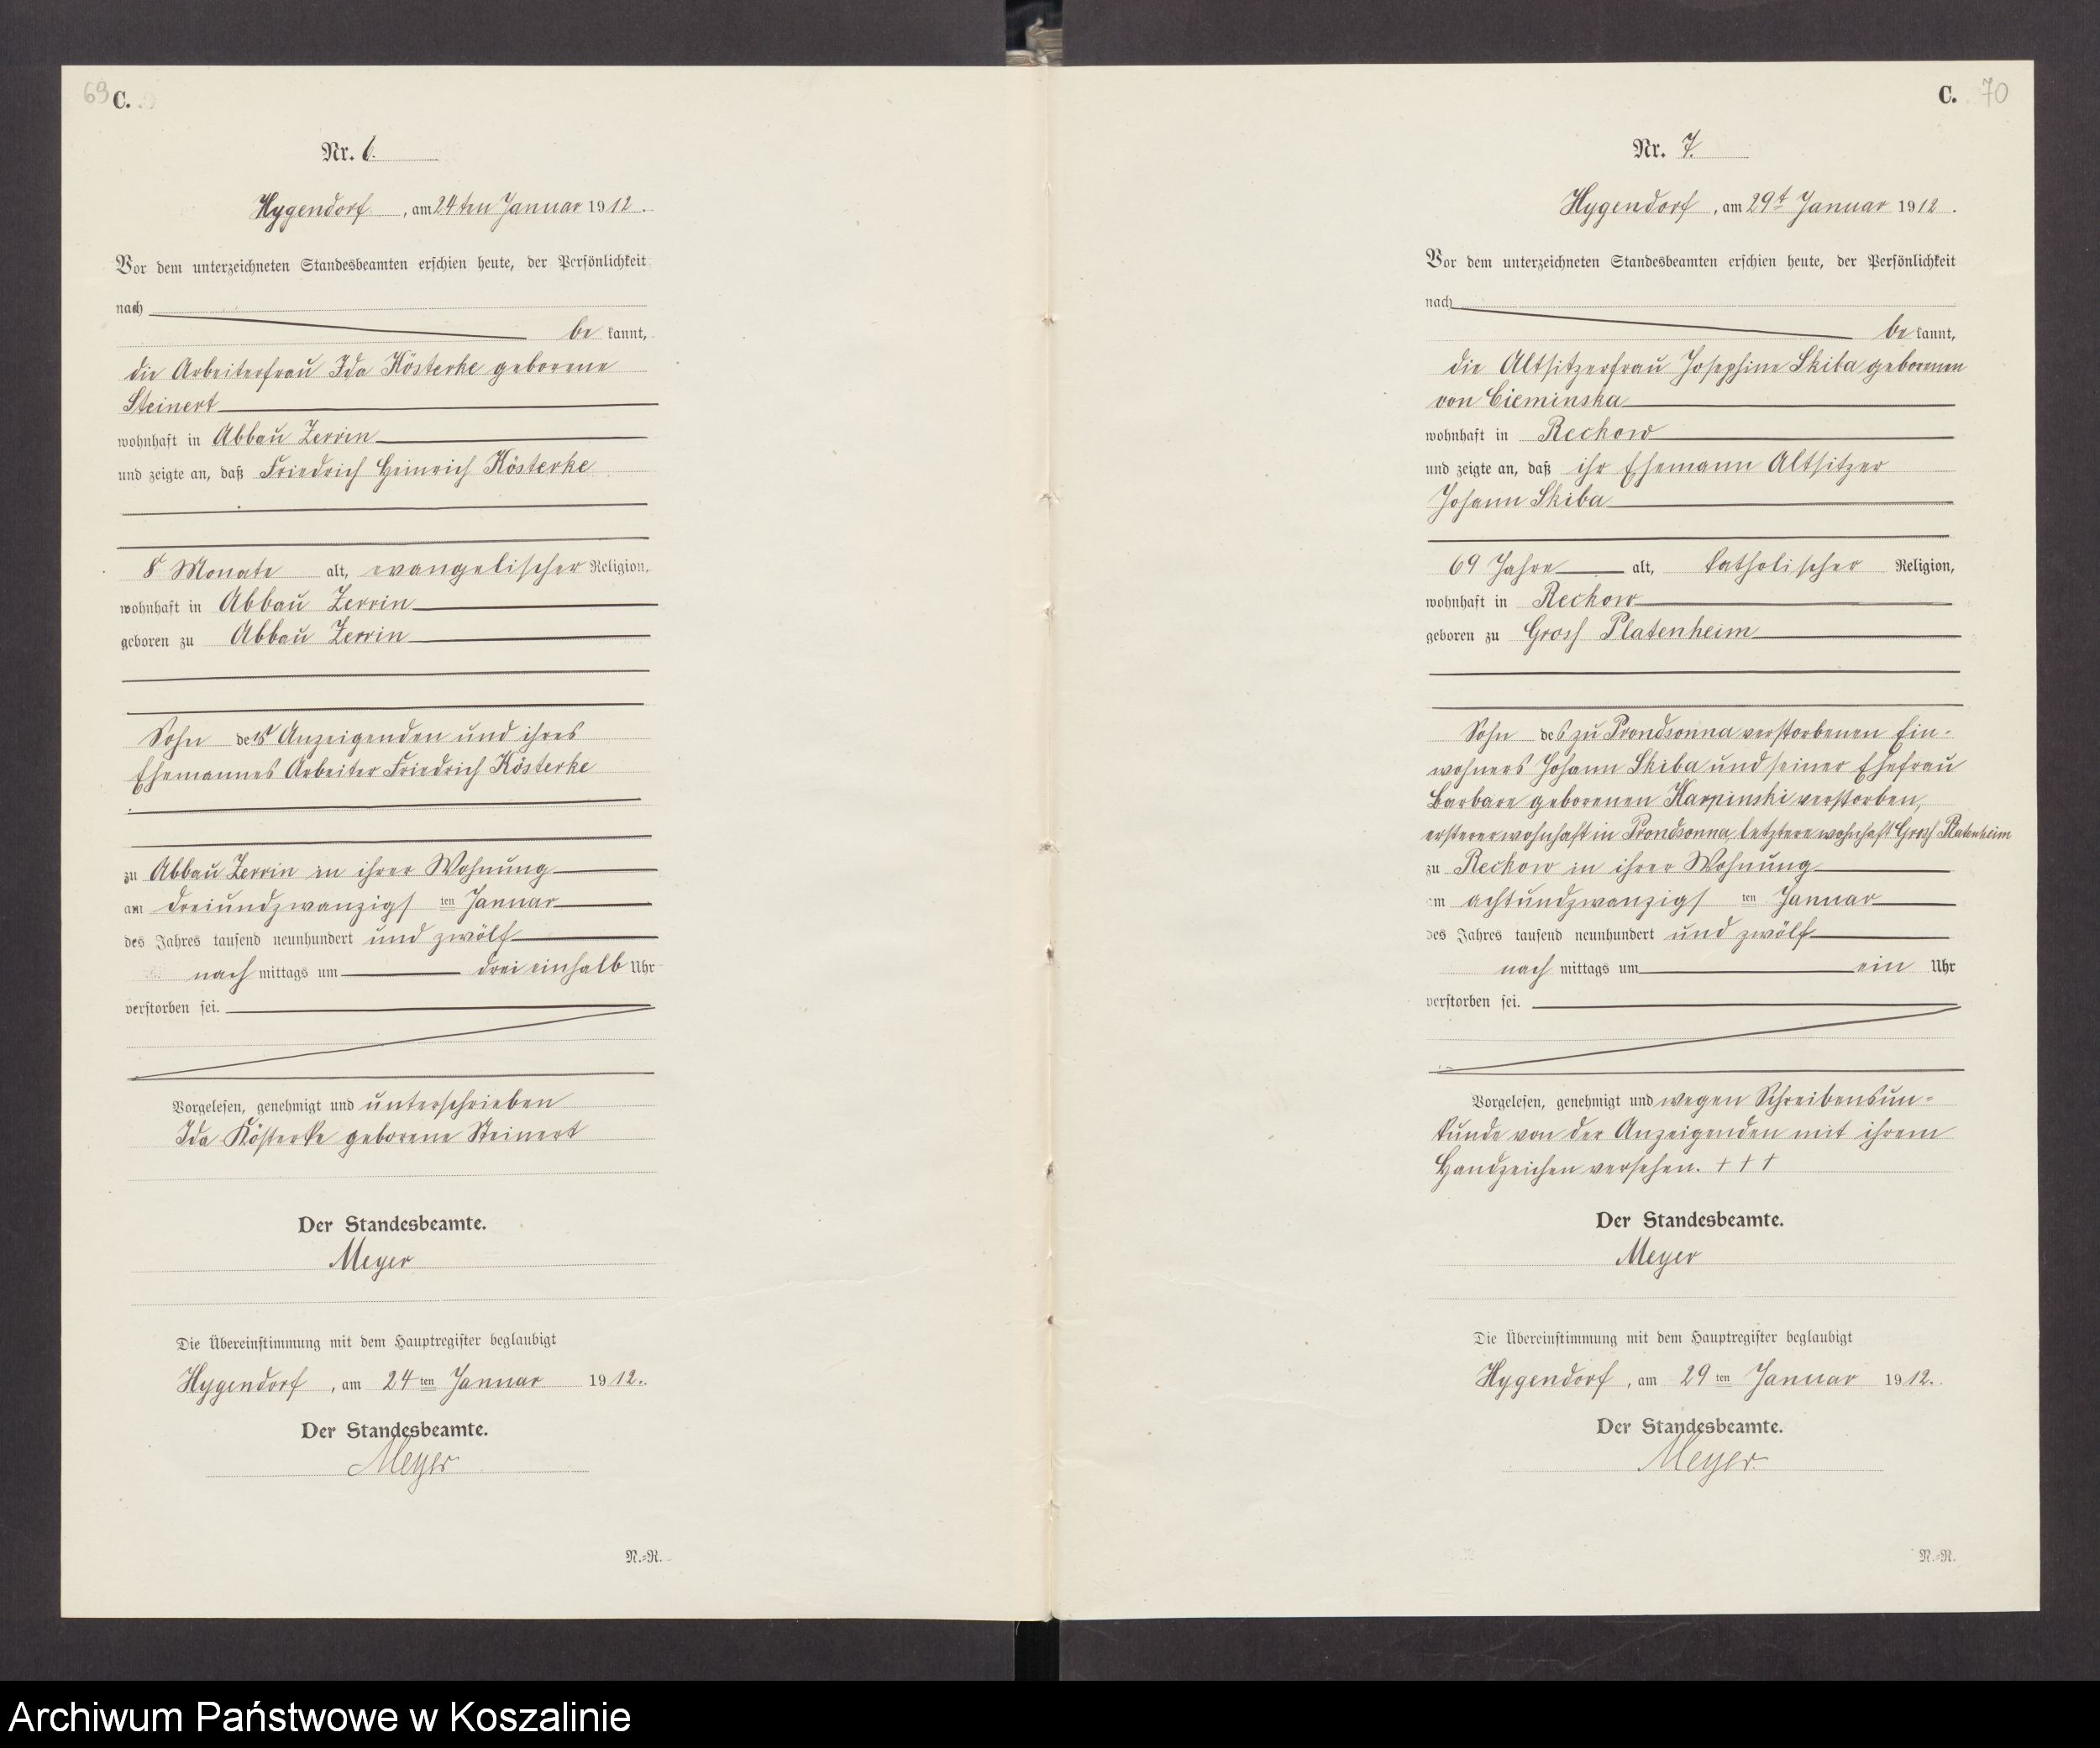 69 C.
Nr. 6.
Hygendorf, am 24ten Januar 1912.
Vor dem unterzeichneten Standesbeamten erschien heute, der Persönlichkeit
nach
bekannt,
die Arbeiterfrau Ida Kösterke geborene
Steinert
wohnhaft in Abbau Zerrin
und zeigte an, daß Friedrich Heinrich Kösterke
8 Monate alt, evangelischer Religion,
wohnhaft in Abbau Zerrin
geboren zu Abbau Zerrin
Sohn der Anzeigenden und ihres
Ehemannes Arbeiter Friedrich Kösterke
zu Abbau Zerrin in ihrer Wohnung
am dreiundzwanzigsten Januar
des Jahres tausend neunhundert und zwölf
nachmittags um drei einhalb Uhr
verstorben sei.
Vorgelesen, genehmigt und unterschrieben
Ida Kösterke geborene Steinert
Der Standesbeamte.
Meyer
Die Übereinstimmung mit dem Hauptregister beglaubigt
Hygendorf, am 24ten Januar 1912.
Der Standesbeamte.
Meyer
N.=R.
C. 70
Nr. 7.
Hygendorf, am 29t Januar 1912.
Vor dem unterzeichneten Standesbeamten erschien heute, der Persönlichkeit
nach
bekannt,
die Altsitzerfrau Josephine Skiba geborenen
von Cieminska
wohnhaft in Reckow
und zeigte an, daß ihr Ehemann Altsitzer
Johann Skiba
69 Jahre alt, katholischer Religion,
wohnhaft in Reckow
geboren zu Gross Platenheim
Sohn des zu Prondsonna verstorbenen Ein-
wohners Johann Skiba und seiner Ehefrau
Barbara geborenen Karpinski verstorben,
ersterer wohnhaft in Prondsonna, letztere wohnhaft Gross Platenheim
zu Reckow in ihrer Wohnung
am achtundzwanzigsten Januar
des Jahres tausend neunhundert und zwölf
nachmittags um ein Uhr
verstorben sei.
Vorgelesen, genehmigt und wegen Schreibensun-
kunde von der Anzeigenden mit ihrem
Handzeichen versehen. + + +
Der Standesbeamte.
Meyer
Die Übereinstimmung mit dem Hauptregister beglaubigt
Hygendorf, am 29ten Januar 1912.
Der Standesbeamte.
Meyer
N.=R.
Archiwum Państwowe w Koszalinie